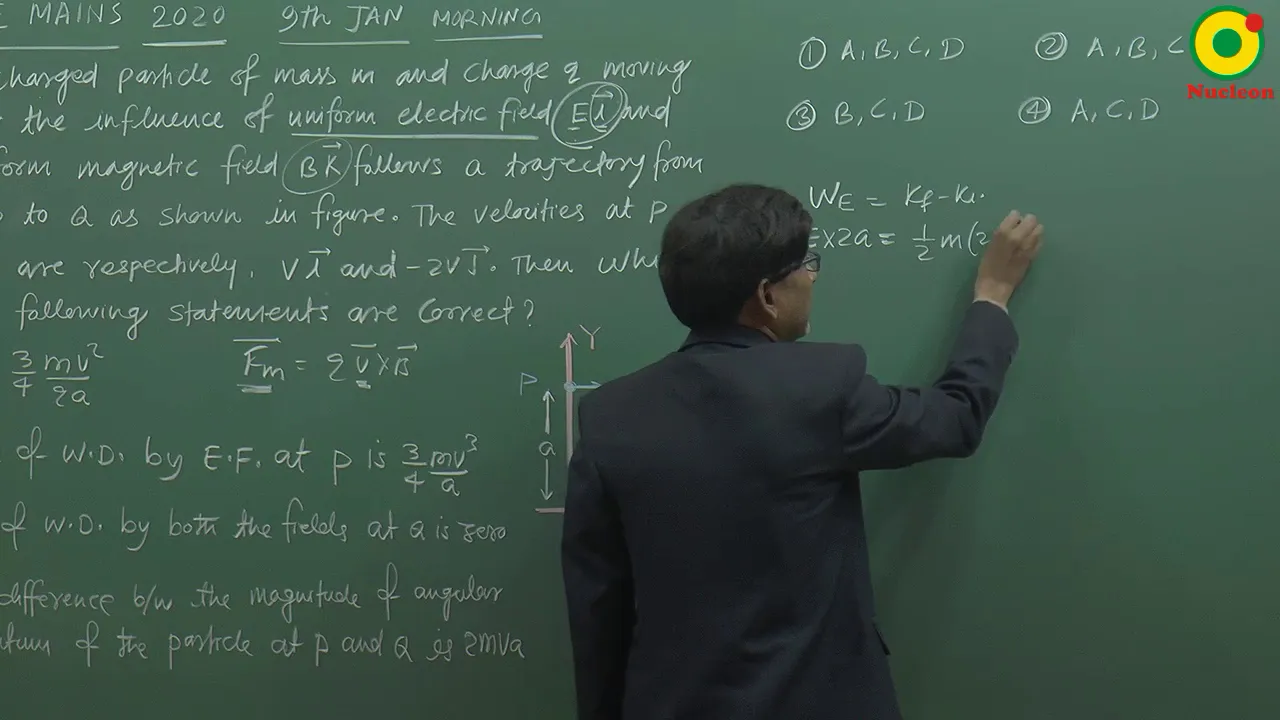 E MAINS 2020 9th JAN MORNING
charged particle of mass m and charge q moving
the influence of uniform electric field E i⃗ and
form magnetic field B K⃗ follows a trajectory from
to Q as shown in figure. The velocities at P
are respectively, V i⃗ and -2V J⃗. Then Whi
following statements are Correct?
3/4 mv²/qa
F⃗m = q v⃗ × B⃗
of W.D. by E.F. at P is 3/4 mv³/a
of W.D. by both the fields at Q is zero
difference b/w the magnitude of angular
ntum of the particle at P and Q is 2mva
Y
P
a
① A, B, C, D
② A, B, C
③ B, C, D
④ A, C, D
W_E = K_f - K_i.
E×2a = 1/2 m(2
Nucleon